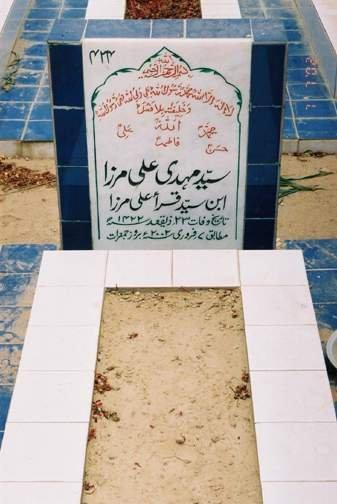 ۴۲۴
الله
بسم الله الرحمن الرحیم
لا اله الا الله محمد رسول الله علی ولی الله وصی رسول الله
وخلیفته بلا فصل
الله
محمد علی
فاطمه
حسن حسین
سید مہدی علی مرزا
ابن سید قرأ علی مرزا
تاریخ وفات ۲۳ ذیقعد ۱۴۲۲ھ
مطابق ۷ فروری ۲۰۰۲ء بروز جمعرات